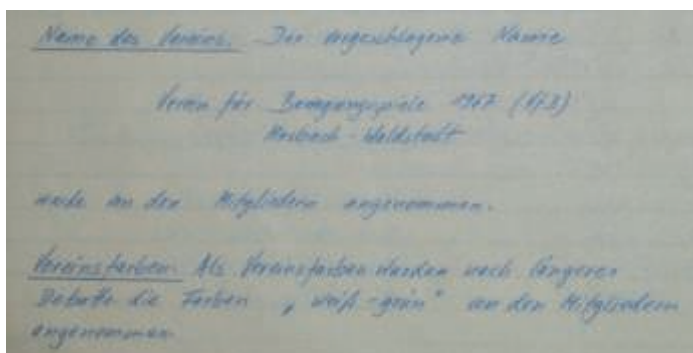 Name des Vereins. Der vorgeschlagene Name
Verein für Bewegungsspiele 1967 (VfB)
Mosbach-Waldstadt
wurde von den Mitgliedern angenommen.
Vereinsfarben. Als Vereinsfarben wurden nach längerer
Debatte die Farben "weiß-grün" von den Mitgliedern
angenommen